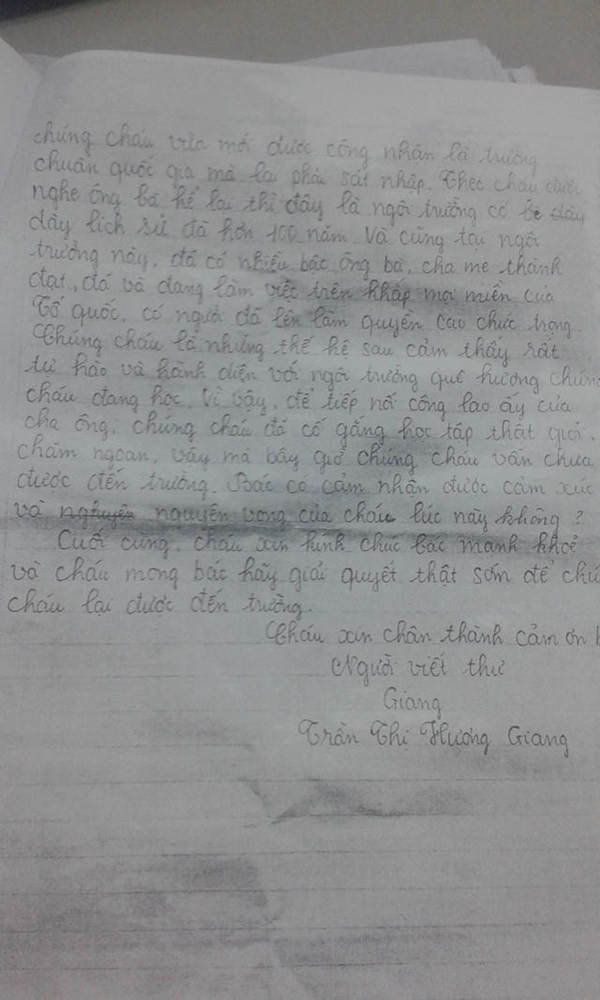 chúng cháu vừa mới được công nhân là trường
chuẩn quốc gia mà lại phải sát nhập. Theo cháu được
nghe ông bà kể lại thì đây là ngôi trường có bề dày
dày lịch sử đã hơn 100 năm và cũng tại ngôi
trường này, đã có nhiều bậc ông bà, cha mẹ thành
đạt, đã và đang làm việc trên khắp mọi miền của
Tổ quốc, có người đã lên làm quyền cao chức trọng
Chúng cháu là những thế hệ sau cảm thấy rất
tự hào và hãnh diện với ngôi trường quê hương chúng
cháu đang học. Vì vậy, để tiếp nối công lao ấy của
cha ông, chúng cháu đã cố gắng học tập thật giỏi,
chăm ngoan, vậy mà bây giờ chúng cháu vẫn chưa
được đến trường. Bác có cảm nhận được cảm xúc
và nguyện vọng của cháu lúc này không?
Cuối cùng, cháu xin kính chúc bác mạnh khoẻ
và cháu mong bác hãy giải quyết thật sớm để chú
cháu lại được đến trường.
Cháu xin chân thành cảm ơn
Người viết thư
Giang
Trần Thị Hương Giang